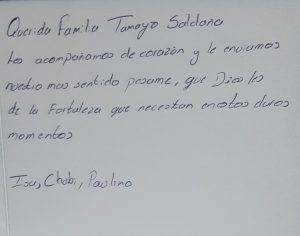 Querida Familia Tamayo Saldana
Los acompañamos de corazón y le enviamos
nuestro mas sentido pesame, que Dios les
de la fortaleza que necesitan en estos duros
momentos
Isa, Chabi, Paulina